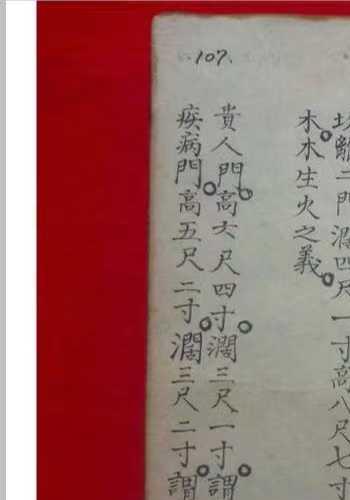 107.
坎離二門濶四尺一寸高八尺七寸
木木生火之義
貴人門高六尺四寸濶三尺一寸謂
疾病門高五尺二寸濶三尺二寸謂